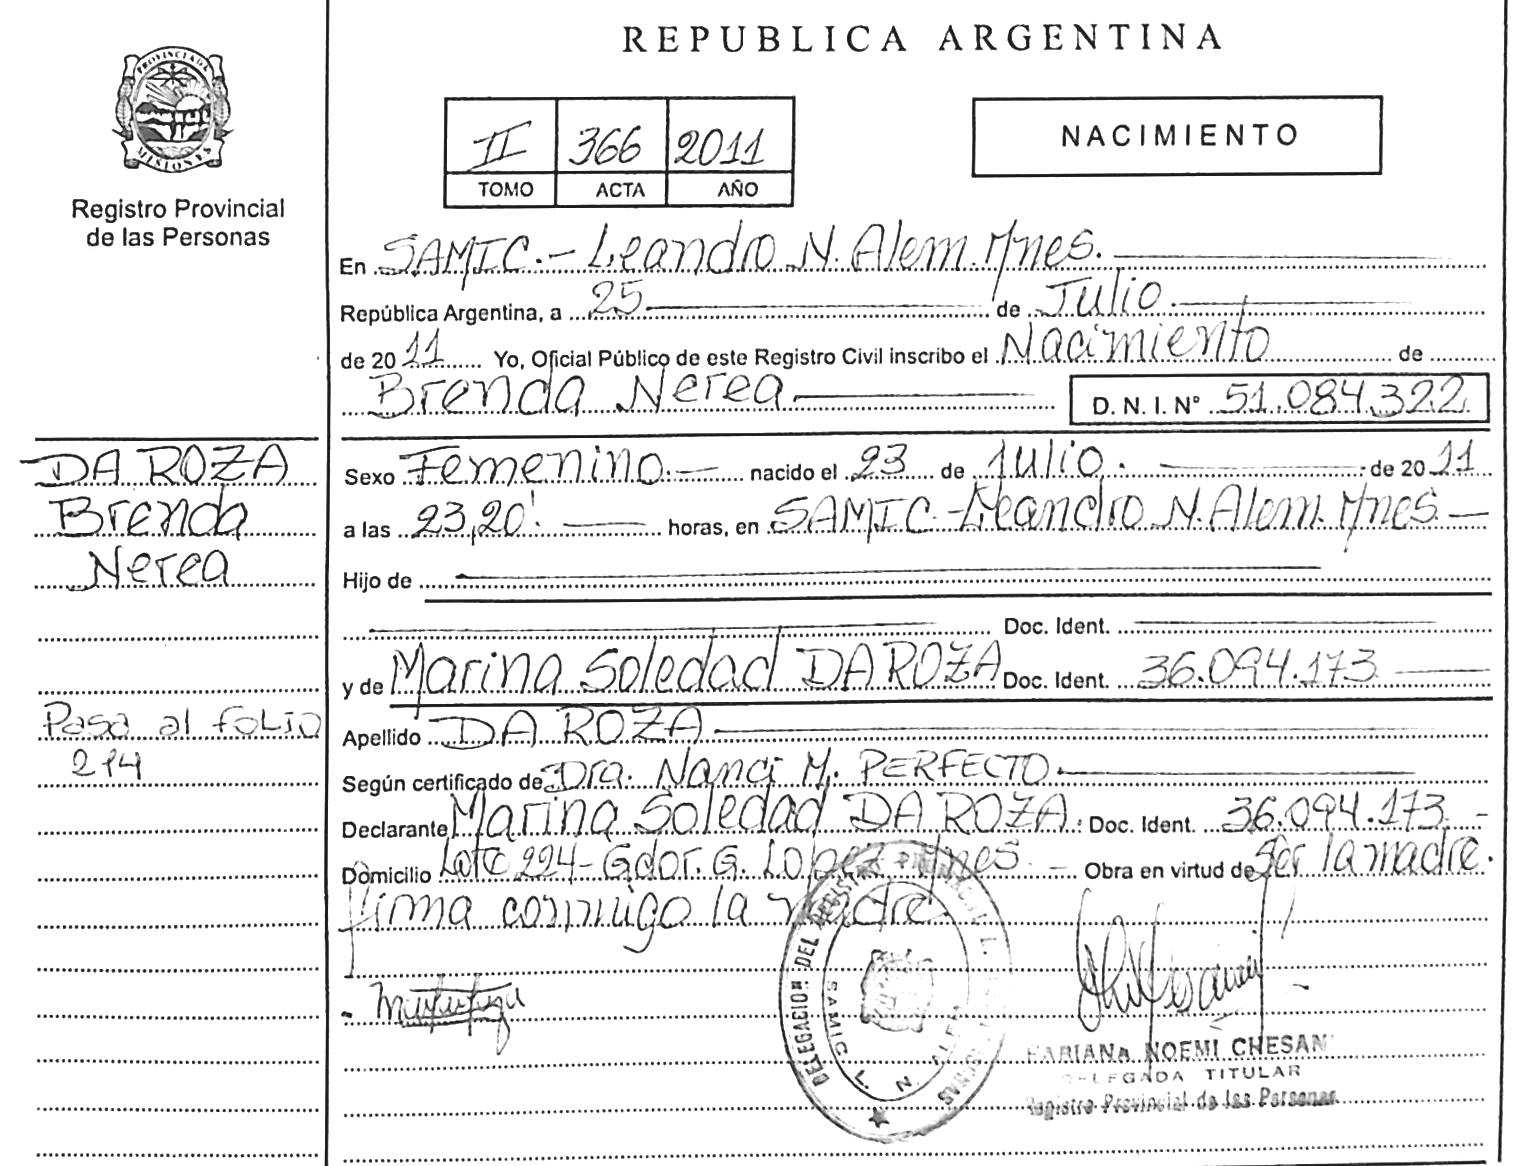 REPUBLICA ARGENTINA
PROVINCIA DE
MISIONES
Registro Provincial
de las Personas
II 366 2011
TOMO ACTA AÑO
NACIMIENTO
En SAMIC.- Leandro N. Alem. Mnes.
República Argentina, a 25 de Julio
de 2011 Yo, Oficial Público de este Registro Civil inscribo el Nacimiento de
Brenda Nerea D. N. I. Nº 51.084.322
DA ROZA
Brenda
Nerea
Pasa al folio
214
Sexo Femenino.- nacido el 23 de Julio. de 2011
a las 23,20'. horas, en SAMIC - Leandro N. Alem. Mnes -
Hijo de
Doc. Ident.
y de Marina Soledad DA ROZA Doc. Ident. 36.094.173
Apellido DA ROZA
Según certificado de Dra. Nanci M. PERFECTO.
Declarante Marina Soledad DA ROZA. Doc. Ident. 36.094.173 -
Domicilio Lote 224 - Gdor. G. Lopez Mnes. - Obra en virtud de Ser la madre.
firma conmigo la madre.
DELEGACION DEL REGISTRO
SAMIC L. N.
FABIANA NOEMI CHESANI
DELEGADA TITULAR
Registro Provincial de las Personas